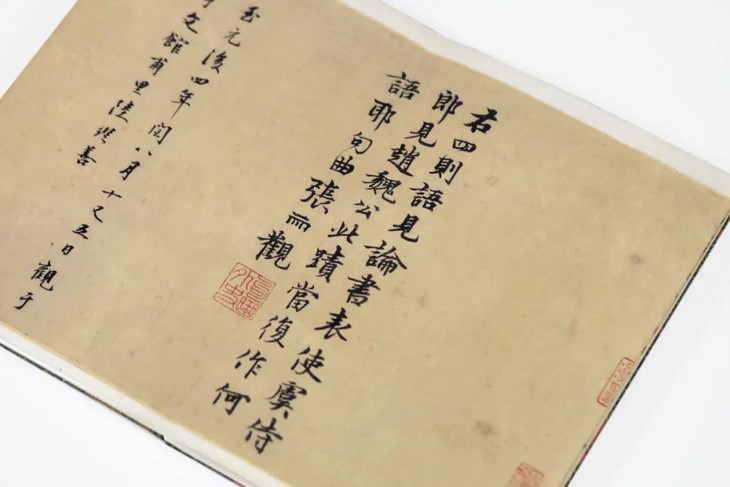 右四則語見論書表使虞侍
郎見趙魏公此蹟當復作何
語耶句曲張雨觀
句曲外史
至元後四年閏八月十又五日觀于
文館甫里陸繼善